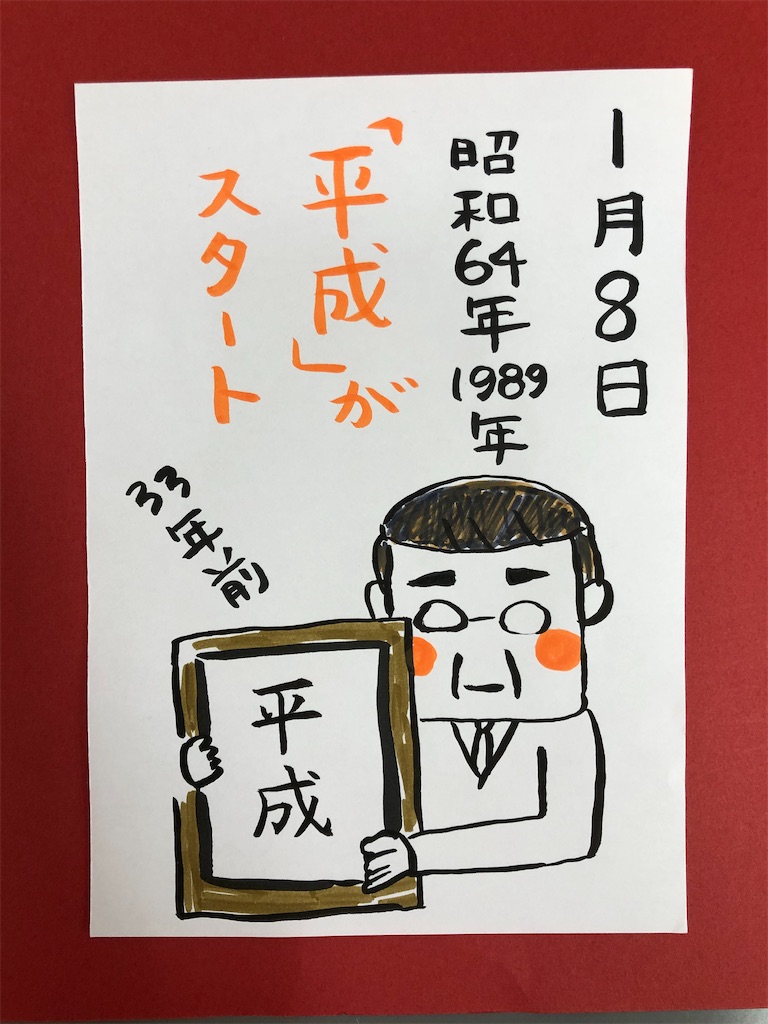 1月8日
昭和64年1989年
「平成」が
スタート
33年前
平成